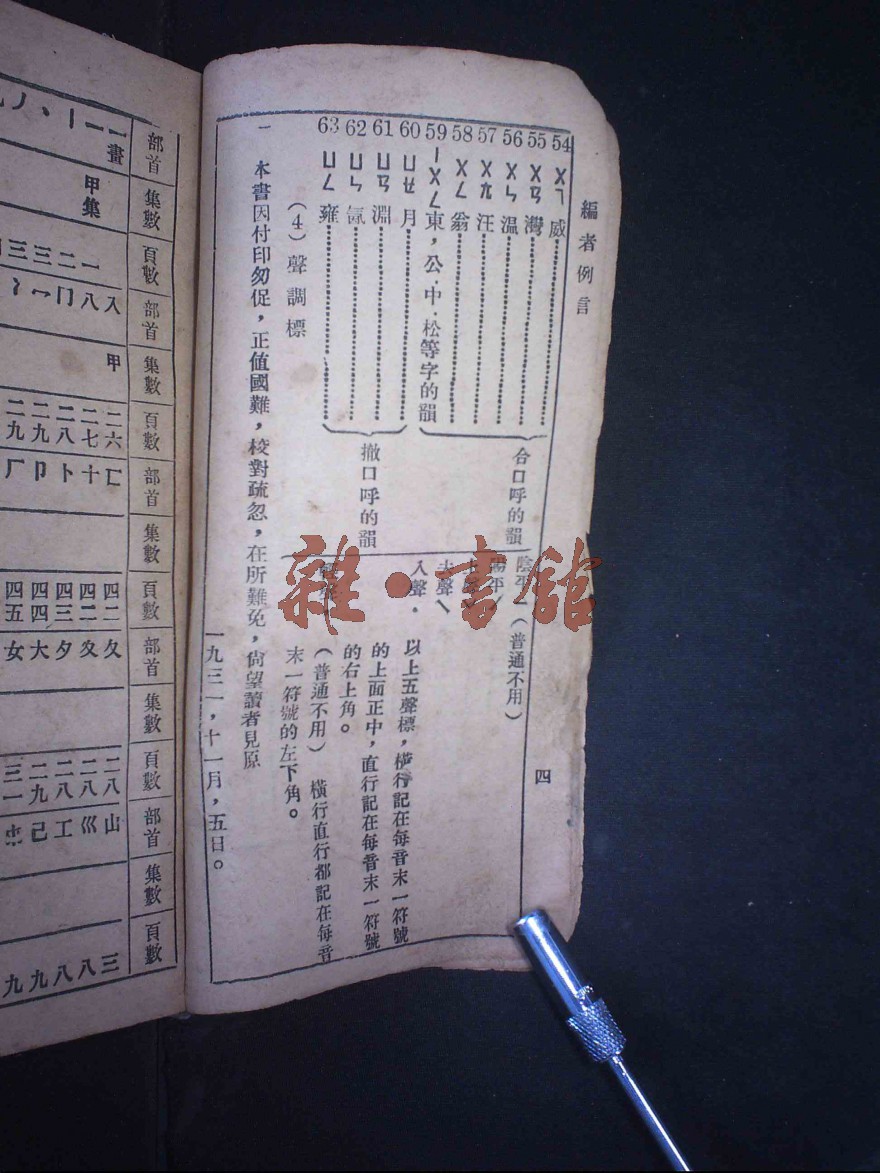 編者例言
四
54 ㄨㄟ 威
55 ㄨㄢ 灣
56 ㄨㄣ 溫
57 ㄨㄤ 汪
58 ㄨㄥ 翁
59 ㄧㄨㄥ 東，公．中．松等字的韻
合口呼的韻
60 ㄩㄝ 月
61 ㄩㄢ 淵
62 ㄩㄣ 氳
63 ㄩㄥ 雍
撤口呼的韻
(4)聲調標
陰平－(普通不用)
陽平ˊ
上聲ˇ
去聲ˋ
入聲．
以上五聲標，橫行記在每音末一符號
的上面正中，直行記在每音末一符號
的右上角。
輕聲．
(普通不用) 橫行直行都記在每音
末一符號的左下角。
一 本書因付印匆促，正值國難，校對疏忽，在所難免，尙望讀者見原
一九三一，十一月，五日。
部首 集數 頁數 部首 集數 頁數 部首 集數 頁數 部首 集數 頁數 部首 集數 頁數
一畫
甲集
一 入 甲 二六 匚 四二 夂 二八 山 三
丨 二 八 二七 十 四二 夊 二八 巛 八
丶 三 冂 二八 卜 四三 夕 二八 工 八
丿 三 冖 二九 卩 四四 大 二九 己 九
二九 厂 四五 女 三一 九
雜·書館